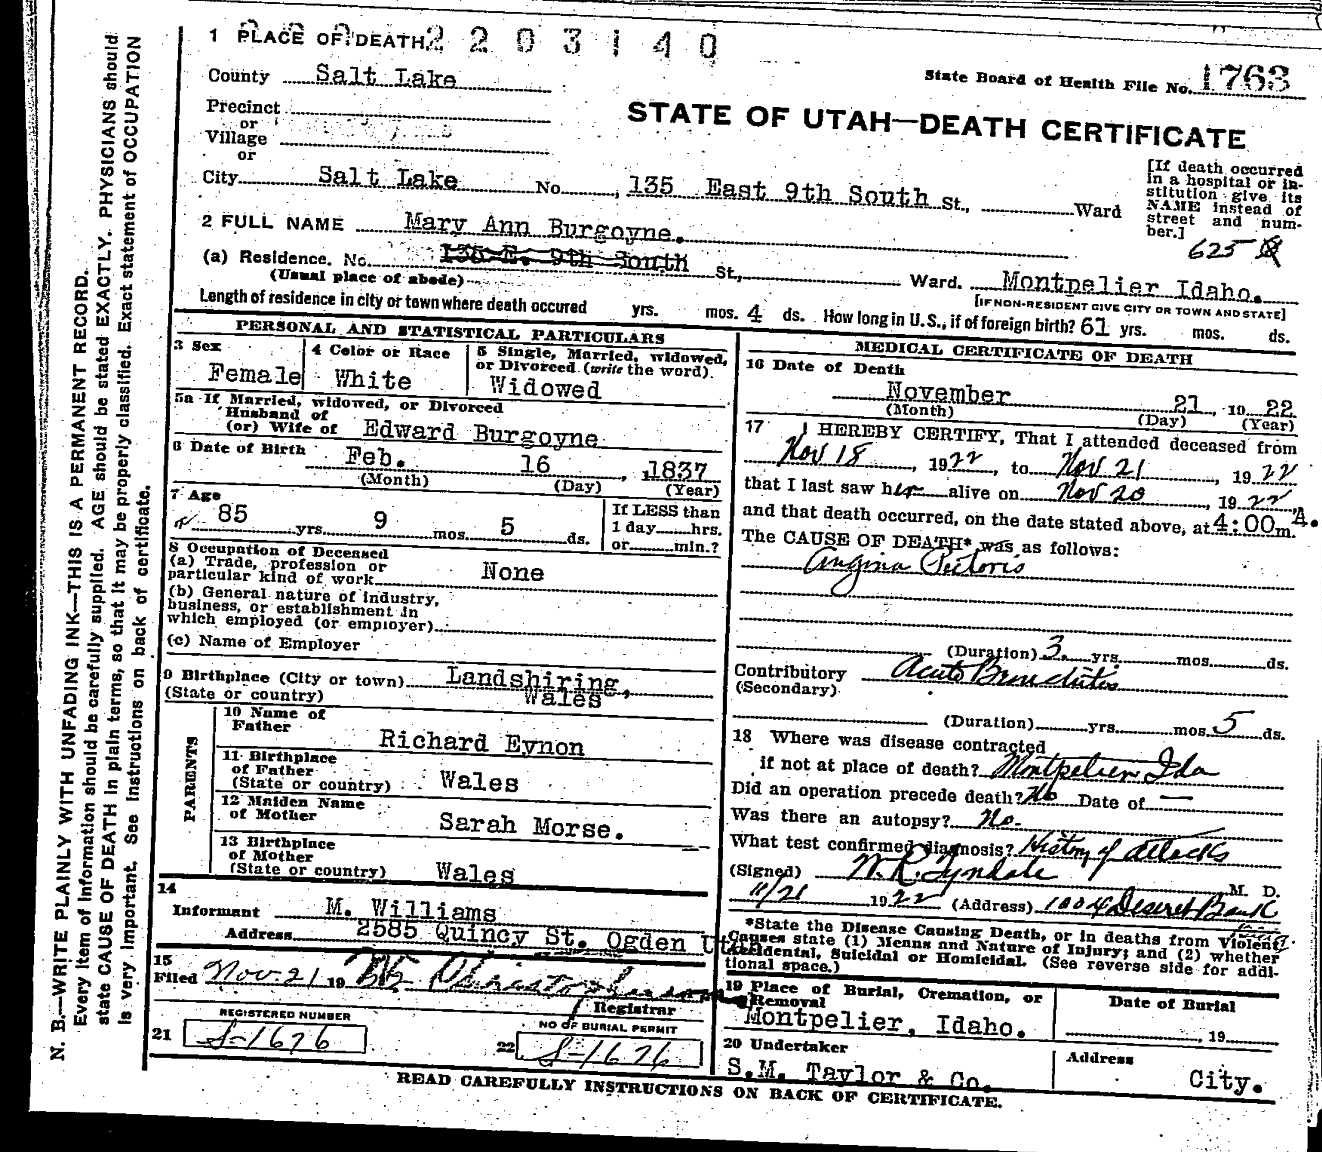 2 2 0 3 1 4 0
1 PLACE OF DEATH
County Salt Lake
State Board of Health File No. 1763
Precinct
or
Village
or
STATE OF UTAH—DEATH CERTIFICATE
City Salt Lake No. 135 East 9th South St., Ward
[If death occurred
in a hospital or in-
stitution give its
NAME instead of
street and num-
ber.]
2 FULL NAME Mary Ann Burgoyne.
625
(a) Residence. No. 135 E. 9th South St., Ward. Montpelier Idaho.
(Usual place of abode)
[IF NON-RESIDENT GIVE CITY OR TOWN AND STATE]
Length of residence in city or town where death occured yrs. mos. 4 ds. How long in U.S., if of foreign birth? 61 yrs. mos. ds.
PERSONAL AND STATISTICAL PARTICULARS
3 Sex
Female
4 Color or Race
White
5 Single, Married, widowed,
or Divorced (write the word).
Widowed
5a If Married, widowed, or Divorced
Husband of
(or) Wife of Edward Burgoyne
6 Date of Birth Feb. 16, 1837
(Month) (Day) (Year)
7 Age
85 yrs. 9 mos. 5 ds.
If LESS than
1 day hrs.
or min.?
8 Occupation of Deceased
(a) Trade, profession or
particular kind of work None
(b) General nature of industry,
business, or establishment in
which employed (or employer)
(c) Name of Employer
9 Birthplace (City or town) Landshiring,
(State or country) Wales
PARENTS
10 Name of
Father Richard Eynon
11 Birthplace
of Father
(State or country) Wales
12 Maiden Name
of Mother Sarah Morse.
13 Birthplace
of Mother
(State or country) Wales
14
Informant M. Williams
Address 2585 Quincy St. Ogden Utah
15
Filed Nov. 21 19
Registrar
REGISTERED NUMBER
21 S-1676
NO OF BURIAL PERMIT
22 S-1676
MEDICAL CERTIFICATE OF DEATH
16 Date of Death
November 21, 19 22
(Month) (Day) (Year)
17 I HEREBY CERTIFY, That I attended deceased from
Nov 18, 1922, to Nov 21, 1922
that I last saw her alive on Nov 20, 1922,
and that death occurred, on the date stated above, at 4:00 A.m.
The CAUSE OF DEATH* was as follows:
Angina Pectoris
(Duration) 3 yrs. mos. ds.
Contributory Acute Bronchitis
(Secondary)
(Duration) yrs. mos. 5 ds.
18 Where was disease contracted
if not at place of death? Montpelier Ida
Did an operation precede death? No Date of —
Was there an autopsy? No.
What test confirmed diagnosis? History of attacks
(Signed) W. R. Tyndale M. D.
11/21 1922 (Address) 1004 Deseret Bank
*State the Disease Causing Death, or in deaths from Violent
Causes state (1) Menns and Nature of Injury; and (2) whether
Accidental, Suicidal or Homicidal. (See reverse side for addi-
tional space.)
19 Place of Burial, Cremation, or
Removal
Montpelier, Idaho.
Date of Burial
, 19
20 Undertaker
S.M. Taylor & Co.
Address
City.
READ CAREFULLY INSTRUCTIONS ON BACK OF CERTIFICATE.
N. B.—WRITE PLAINLY WITH UNFADING INK—THIS IS A PERMANENT RECORD.
Every item of information should be carefully supplied. AGE should be stated EXACTLY. PHYSICIANS should
state CAUSE OF DEATH in plain terms, so that it may be properly classified. Exact statement of OCCUPATION
is very important. See instructions on back of certificate.